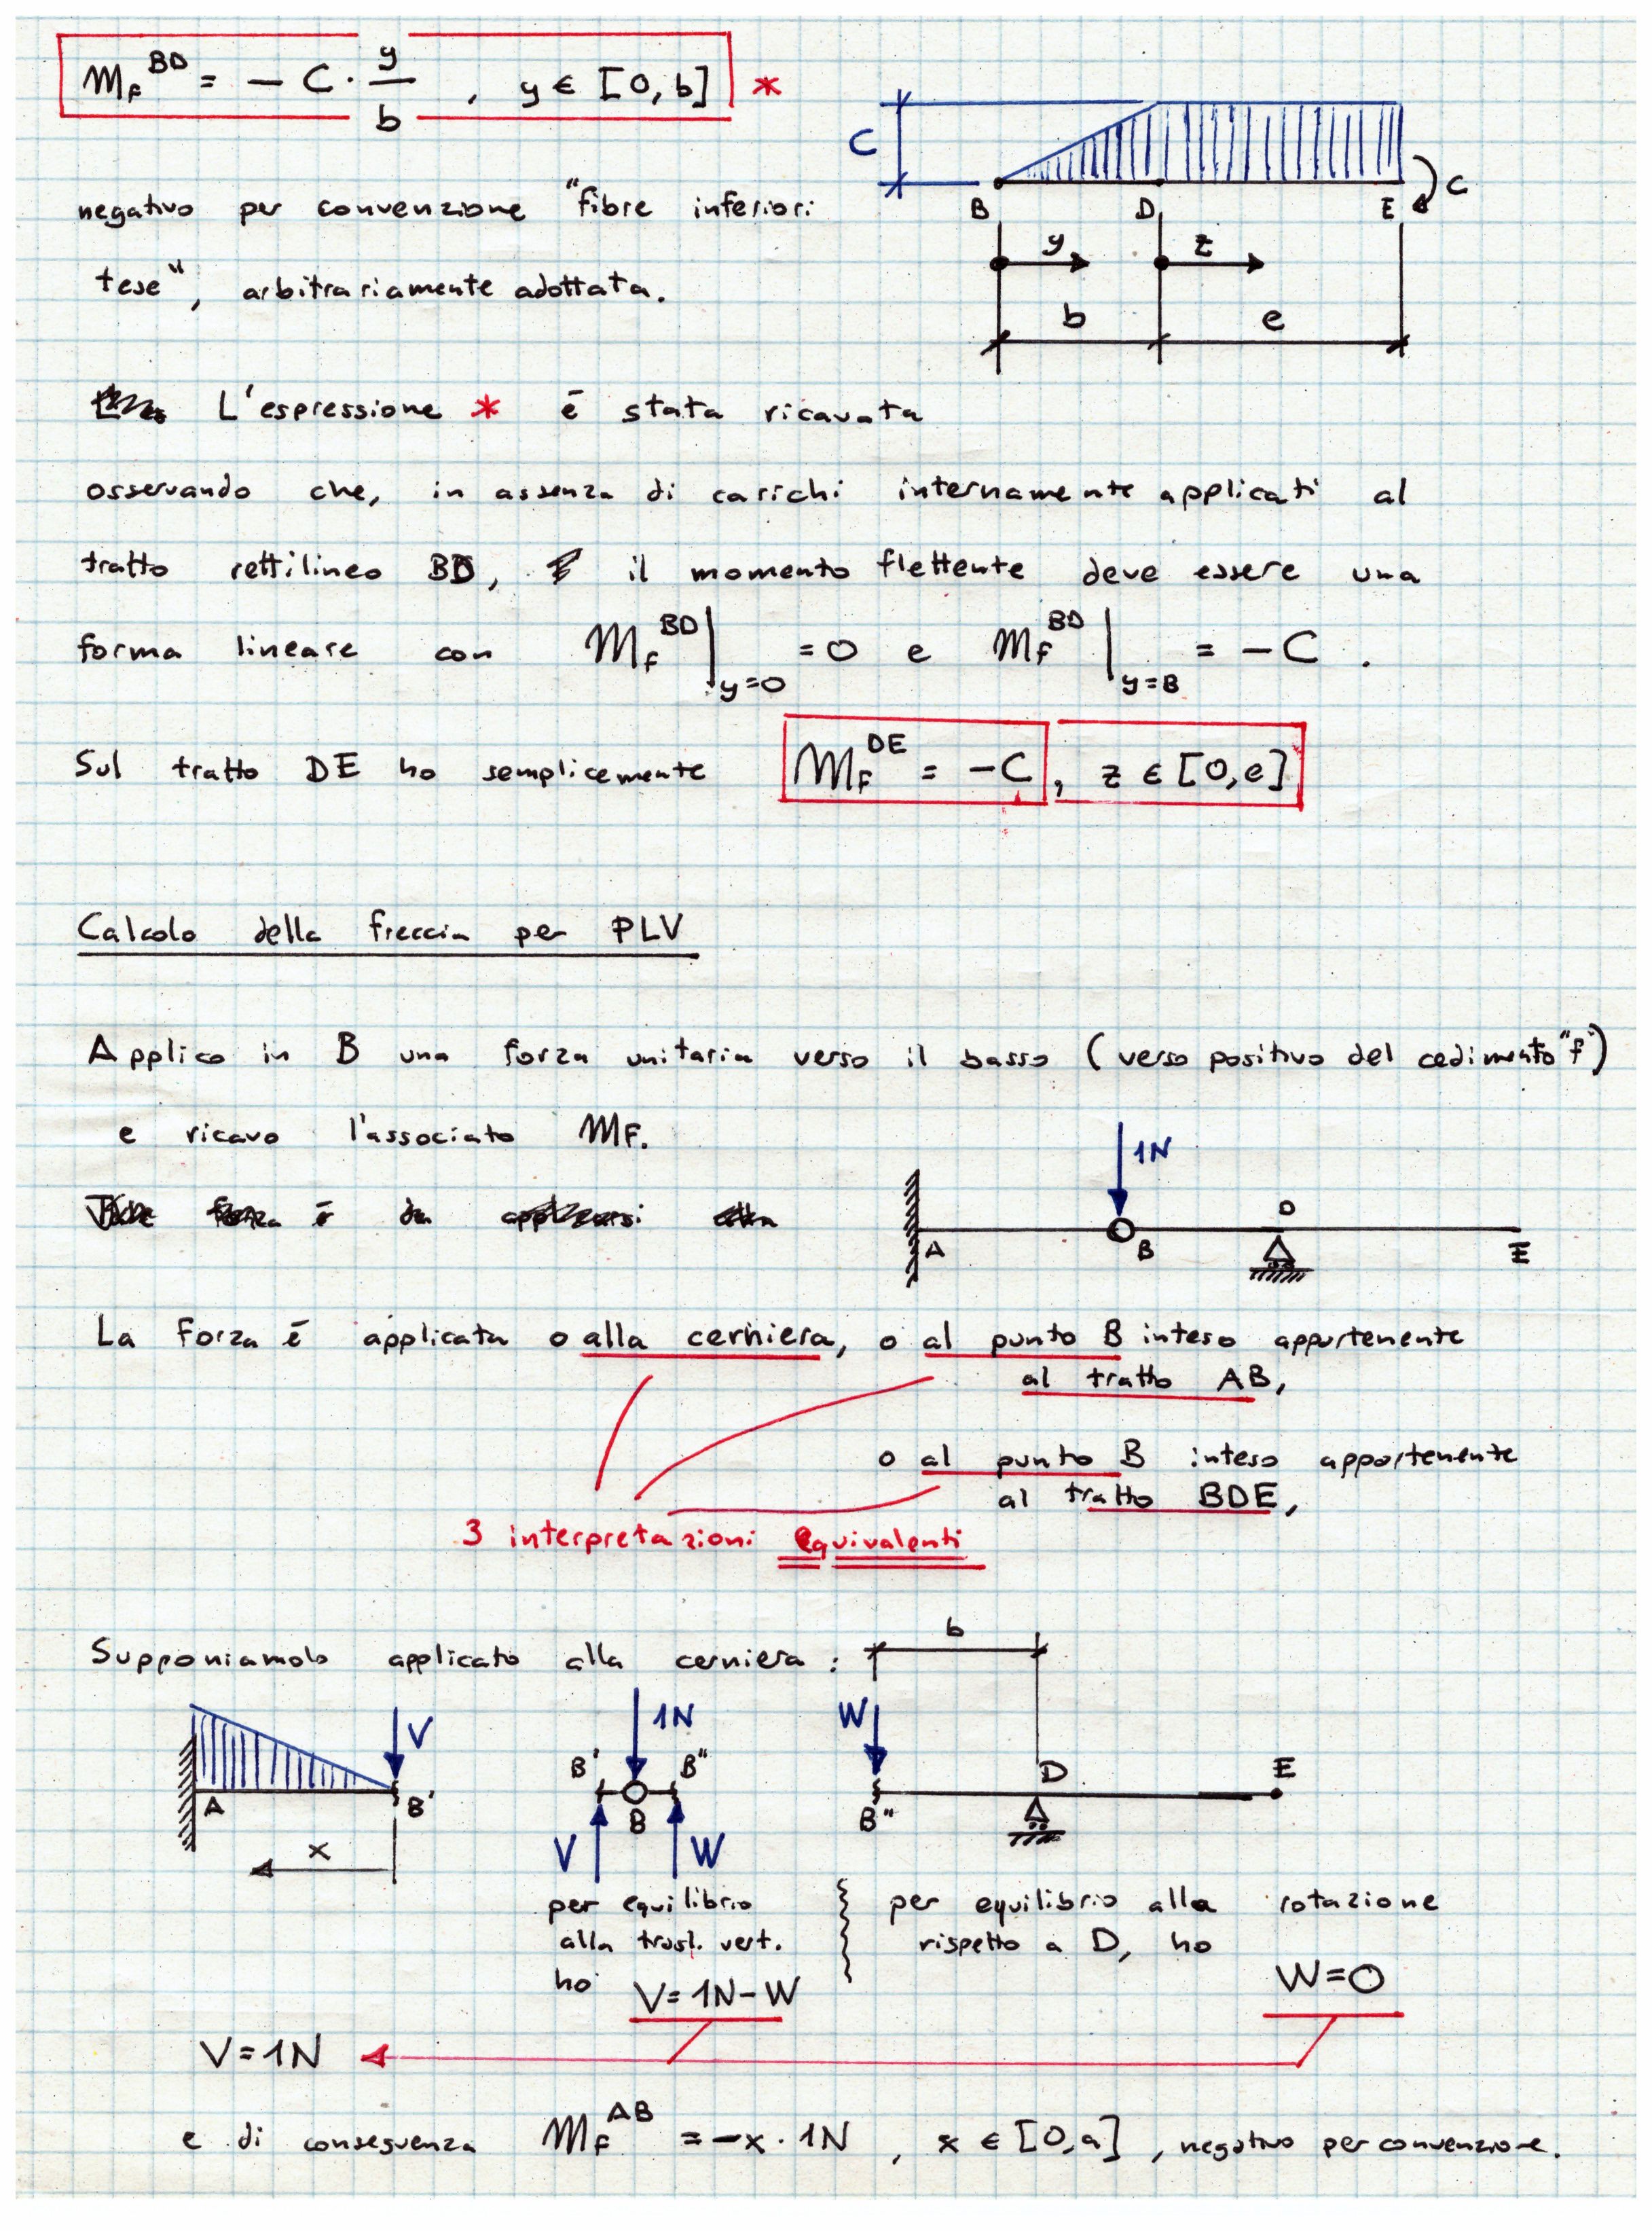 Mf^BD = - C · y/b , y ∈ [0,b] *
C
C
B D E
y z
b e
negativo per convenzione "fibre inferiori
tese", arbitrariamente adottata.
L'espressione * è stata ricavata
osservando che, in assenza di carichi internamente applicati al
tratto rettilineo BD, il momento flettente deve essere una
forma lineare con Mf^BD|y=0 = 0 e Mf^BD|y=B = -C .
Sul tratto DE ho semplicemente Mf^DE = -C , z ∈ [0,e]
Calcolo della freccia per PLV
Applico in B una forza unitaria verso il basso (verso positivo del cedimento "f")
e ricavo l'associato Mf.
1N
A B D E
La forza è applicata o alla cerniera, o al punto B inteso appartenente
al tratto AB,
o al punto B inteso appartenente
al tratto BDE,
3 interpretazioni equivalenti
Supponiamolo applicato alla cerniera :
b
V 1N W
B' B" D E
A B' B B"
x V W
per equilibrio
alla trasl. vert.
ho V = 1N - W
per equilibrio alla rotazione
rispetto a D, ho
W = 0
V = 1N
e di conseguenza Mf^AB = -x · 1N , x ∈ [0,a] , negativo per convenzione.